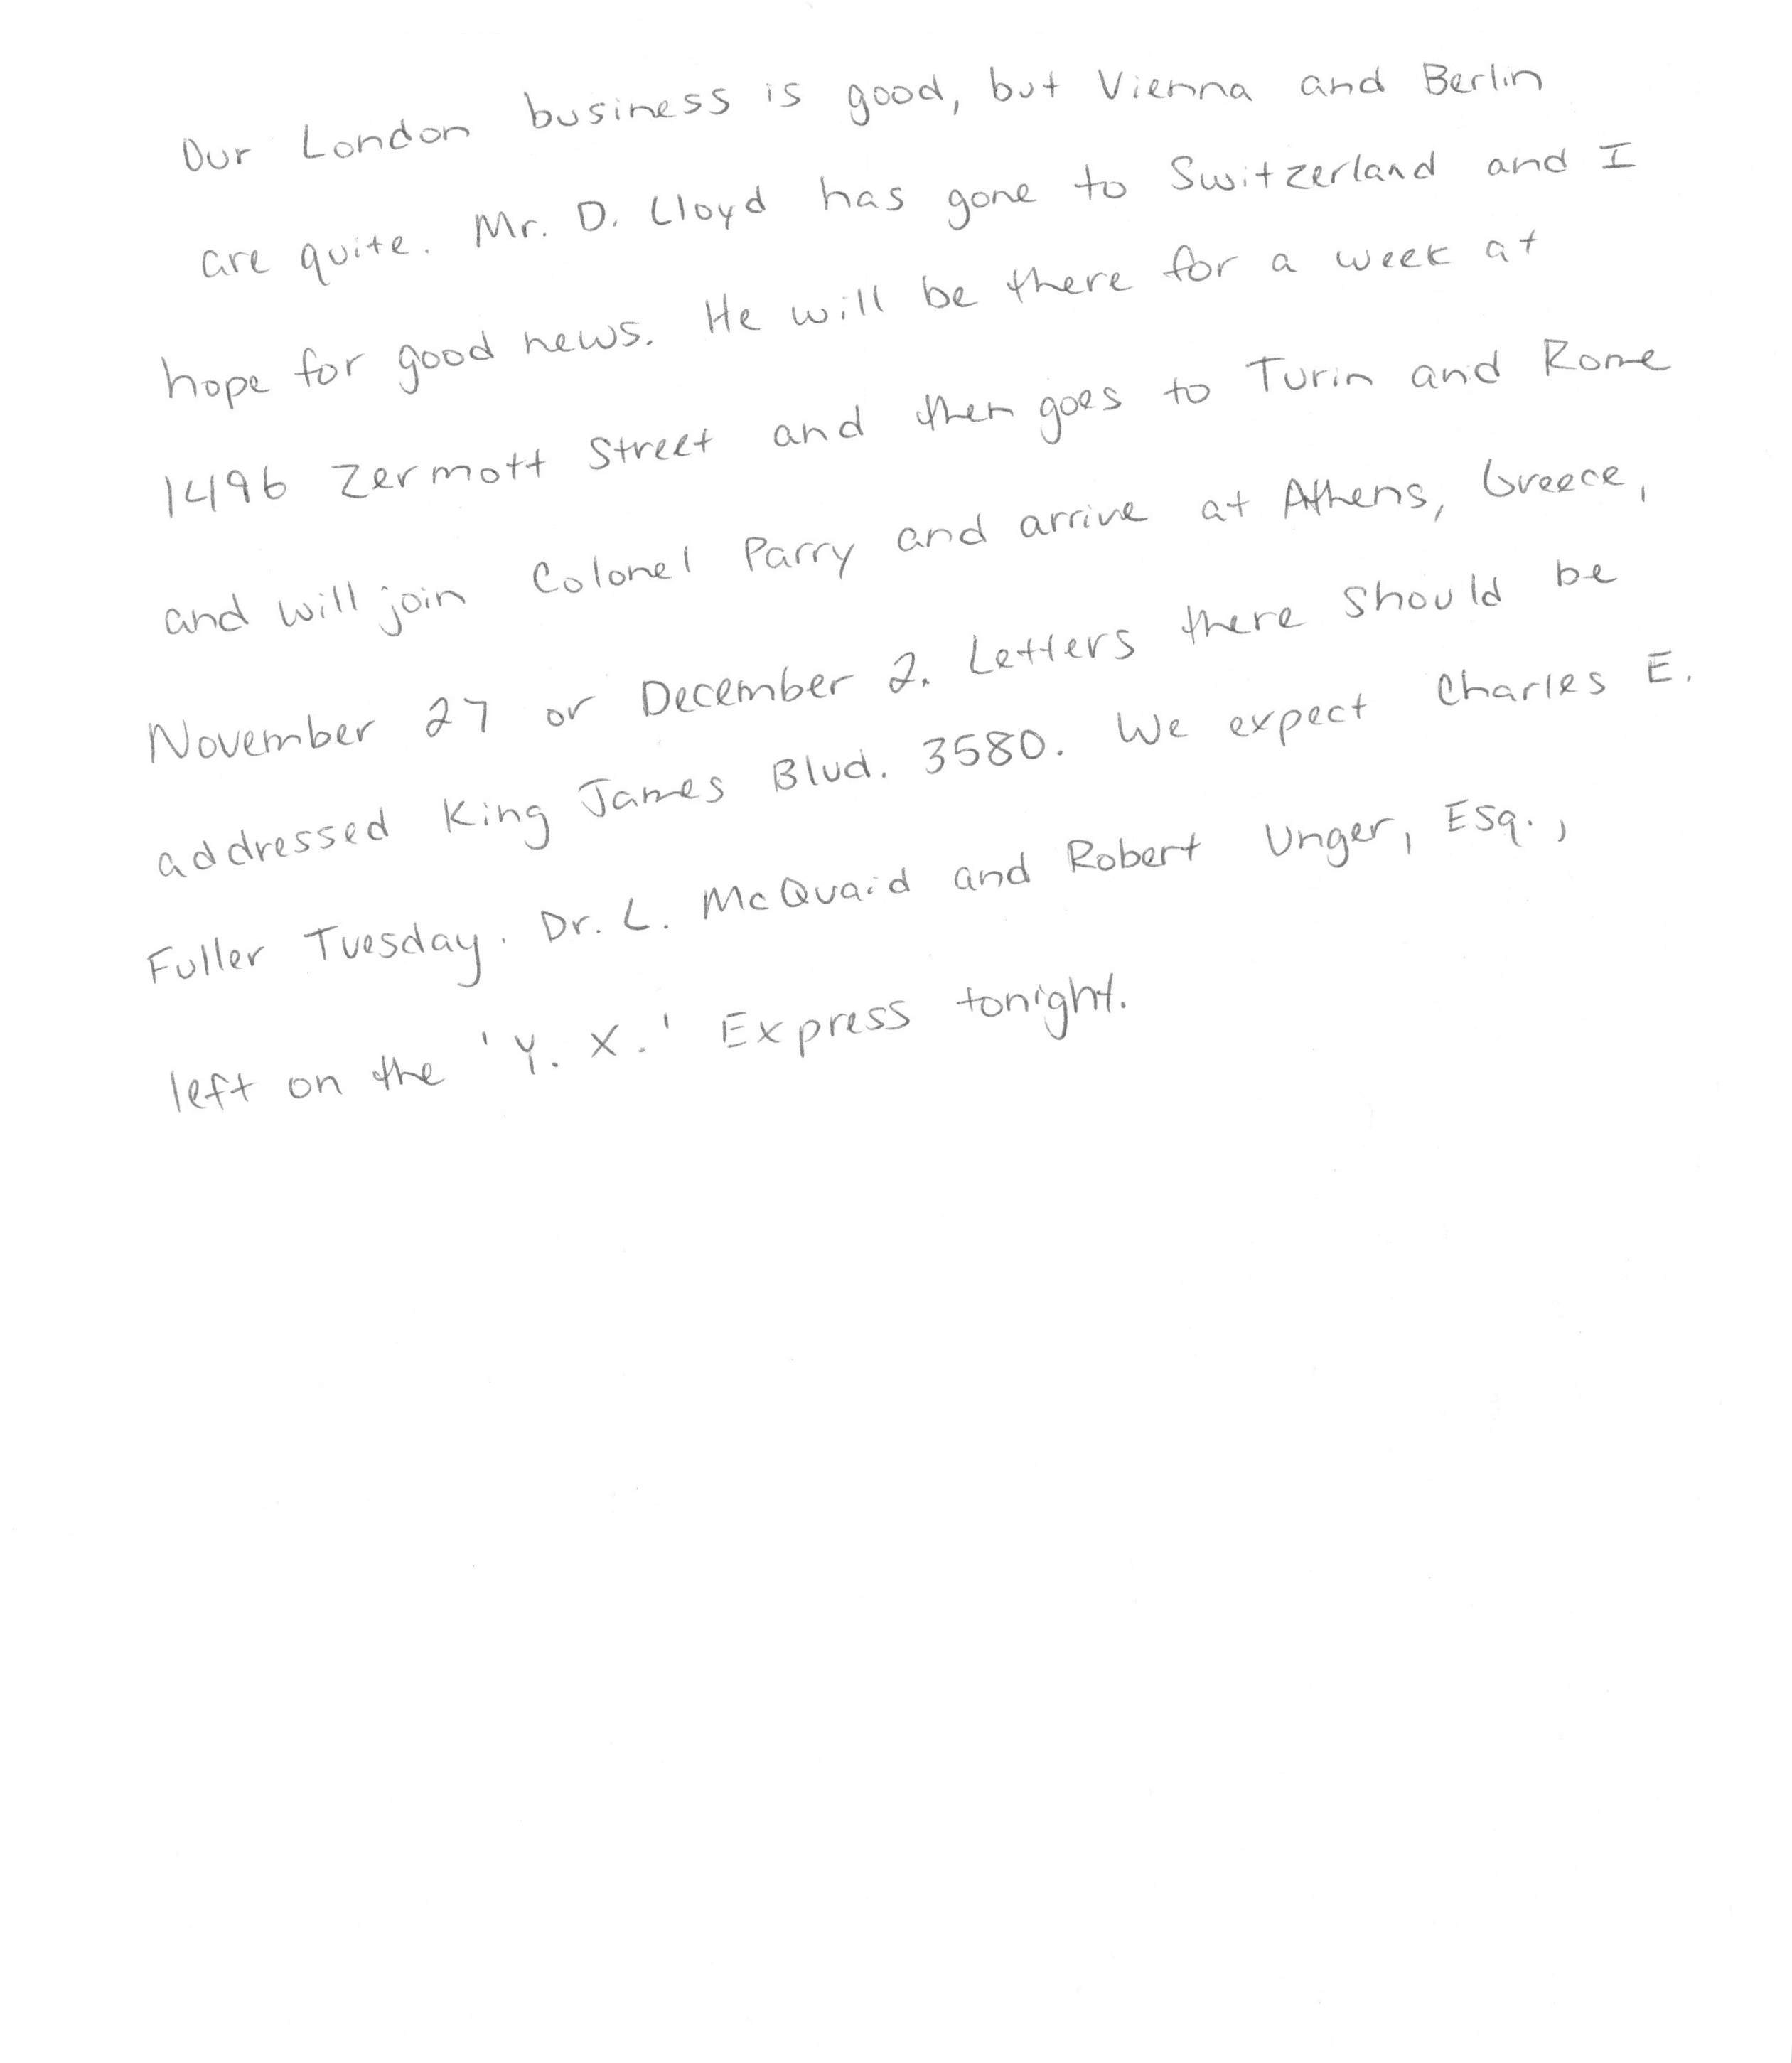 Our London business is good, but Vienna and Berlin
are quite. Mr. D. Lloyd has gone to Switzerland and I
hope for good news. He will be there for a week at
1496 Zermott Street and then goes to Turin and Rome
and will join Colonel Parry and arrive at Athens, Greece,
November 27 or December 2. Letters there should be
addressed King James Blvd. 3580. We expect Charles E.
Fuller Tuesday. Dr. L. McQuaid and Robert Unger, Esq.,
left on the 'Y. X.' Express tonight.